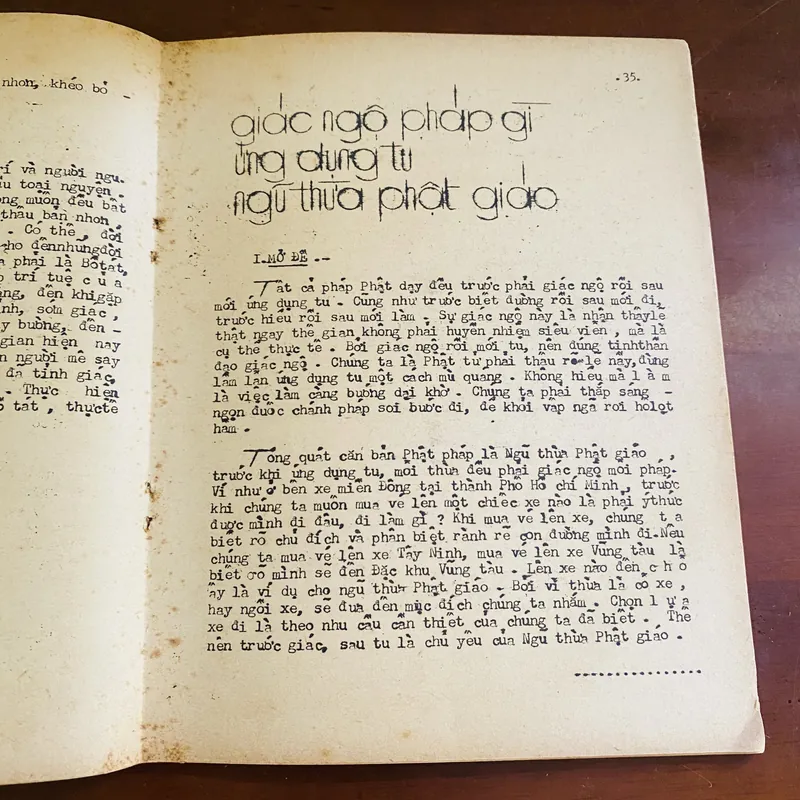 nhơn, khéo bỏ -
rí và người ngu.
ầu toại nguyện.
ng muốn đều bất
thấu bản nhơn
. Có thể, đời
cho đếnnhữngđời
a phải là Bồtát,
ó trí tuệ của
ng, đến khigặp
nh, sớm giác,
y buông, đến -
gian hiện nay
n người mê say
đã tỉnh giác,
. Thực hiện
ồ tát, thựctế
.35.
giác ngộ pháp gì
ứng dụng tu
ngũ thừa phật giáo
I.MỞ ĐỀ .--
Tất cả pháp Phật dạy đều trước phải giác ngộ rồi sau
mới ứng dụng tu . Cũng như trước biết đường rồi sau mới đi,
trước hiểu rồi sau mới làm . Sự giác ngộ này là nhận thấylẽ
thật ngay thế gian không phải huyền nhiệm siêu viễn , mà là
cụ thể thực tế . Bởi giác ngộ rồi mới tu, nên đúng tinhthần
đạo giác ngộ . Chúng ta là Phật tử phải thấu rõ lẽ nầy,đừng
lầm lẫn ứng dụng tu một cách mù quáng . Không hiểu mà làm
là việc làm càng bướng dại khờ . Chúng ta phải thắp sáng -
ngọn đuốc chánh pháp soi bước đi, để khỏi vấp ngã rơi hốlọt
hầm .
Tổng quát căn bản Phật pháp là Ngũ thừa Phật giáo ,
trước khi ứng dụng tu, mỗi thừa đều phải giác ngộ mỗi pháp.
Ví như ở bến xe miền Đông tại thành Phố Hồ chí Minh , trước
khi chúng ta muốn mua vé lên một chiếc xe nào là phải ýthức
được mình đi đâu, đi làm gì ? Khi mua vé lên xe, chúng ta
biết rõ chủ đích và phân biệt rành rẽ con đường mình đi.Nếu
chúng ta mua vé lên xe Tây Ninh, mua vé lên xe Vũng tàu là
biết rõ mình sẽ đến Đặc khu Vũng Tàu . Lên xe nào đến chỗ
ấy là ví dụ cho ngũ thừa Phật giáo . Bởi vì thừa là cỗ xe ,
hay ngồi xe, sẽ đưa đến mục đích chúng ta nhắm . Chọn lựa
xe đi là theo nhu cầu cần thiết của chúng ta đã biết . Thế
nên trước giác, sau tu là chủ yếu của Ngũ thừa Phật giáo .
..................